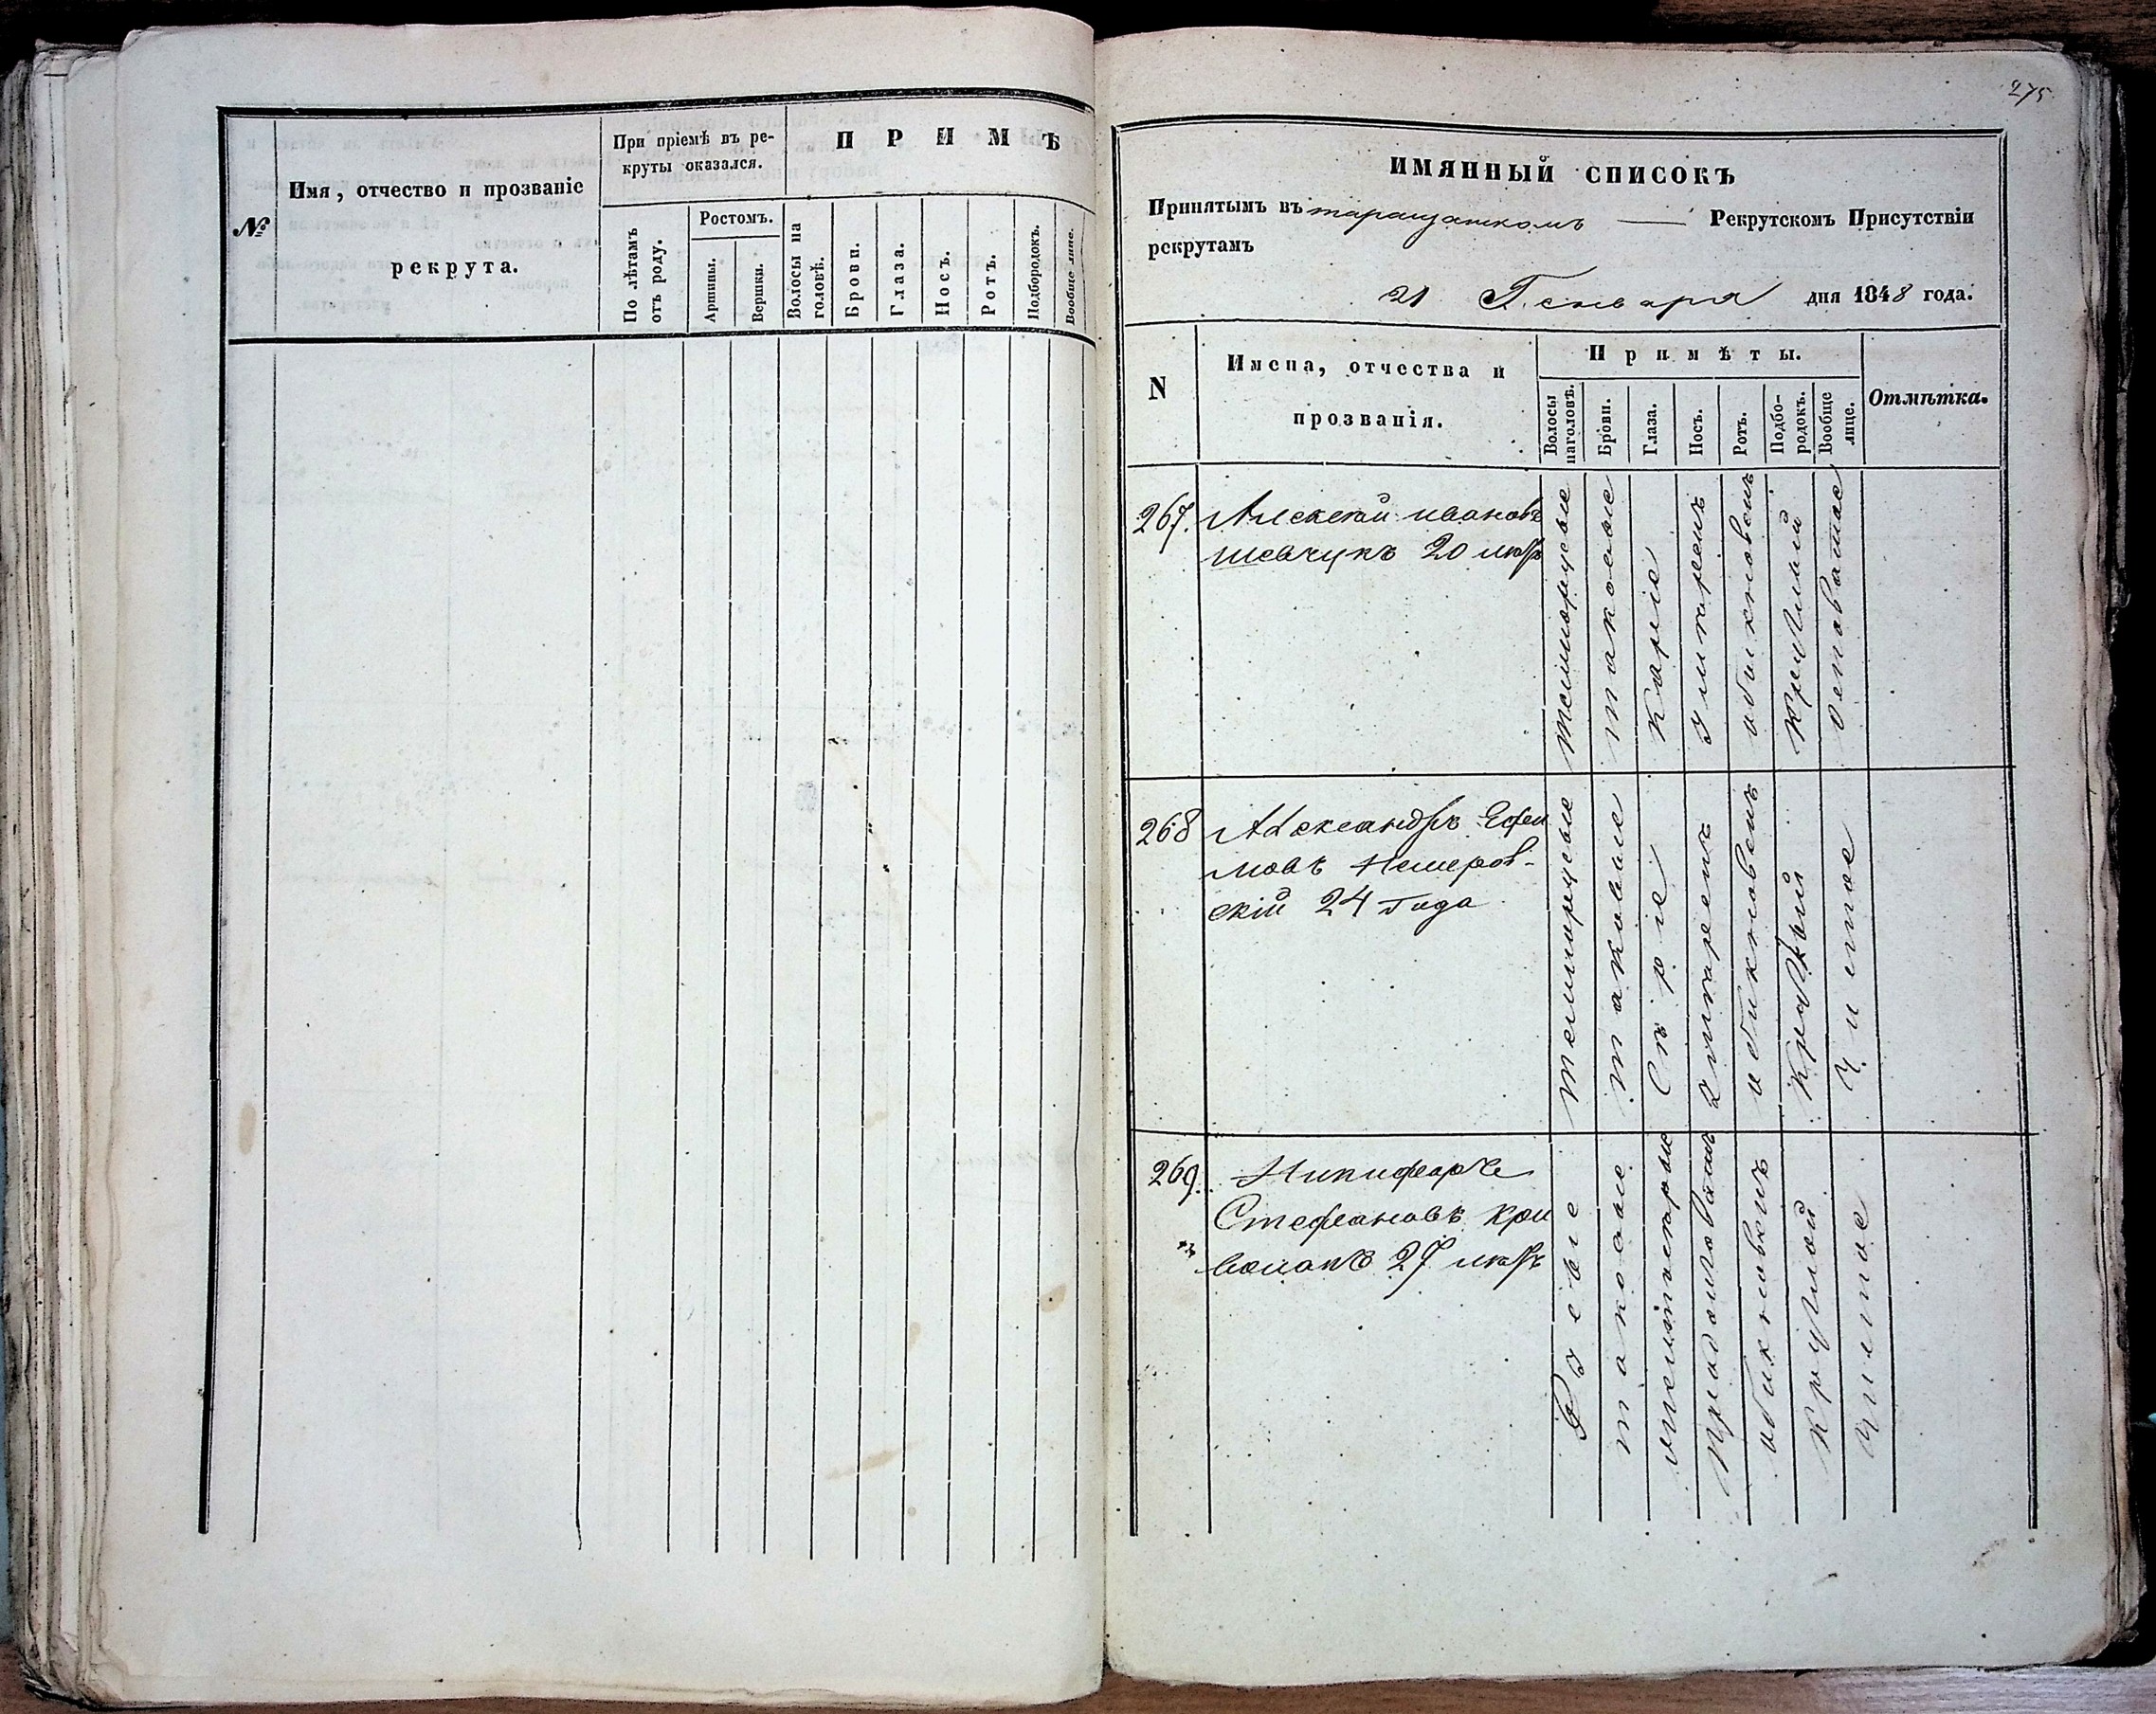 №
Имя, отчество и прозваніе
рекрута.
При пріемѣ въ ре-
круты оказался.
По лѣтамъ
отъ роду.
Ростомъ.
Аршины.
Вершки.
ПРИМѢ
Волосы на
головѣ.
Брови.
Глаза.
Носъ.
Ротъ.
Подбородокъ.
Вообще лице.
275
ИМЯННЫЙ СПИСОКЪ
Принятымъ въ таращанскомъ — Рекрутскомъ Присутствіи
рекрутамъ
21 Генваря дня 1848 года.
N
Имена, отчества и
прозванія.
Примѣты.
Волосы
наголовѣ.
Брови.
Глаза.
Носъ.
Ротъ.
Подбо-
родокъ.
Вообще
лице.
Отмѣтка.
267. Алексѣй ивановъ
шевчукъ 20 лѣтъ
темнорусые
таковые
Каріе
умѣренъ
обикновенъ
Круглый
268 Александръ Ефи
мовъ Немеров-
скій 24 года
темнорусые
таковые
Сѣріе
умѣренъ
обикновенъ
Круглый
Чистое
269. Никифоръ
Стефановъ кри
Русые
таковые
обикновенъ
Круглой
Чистое